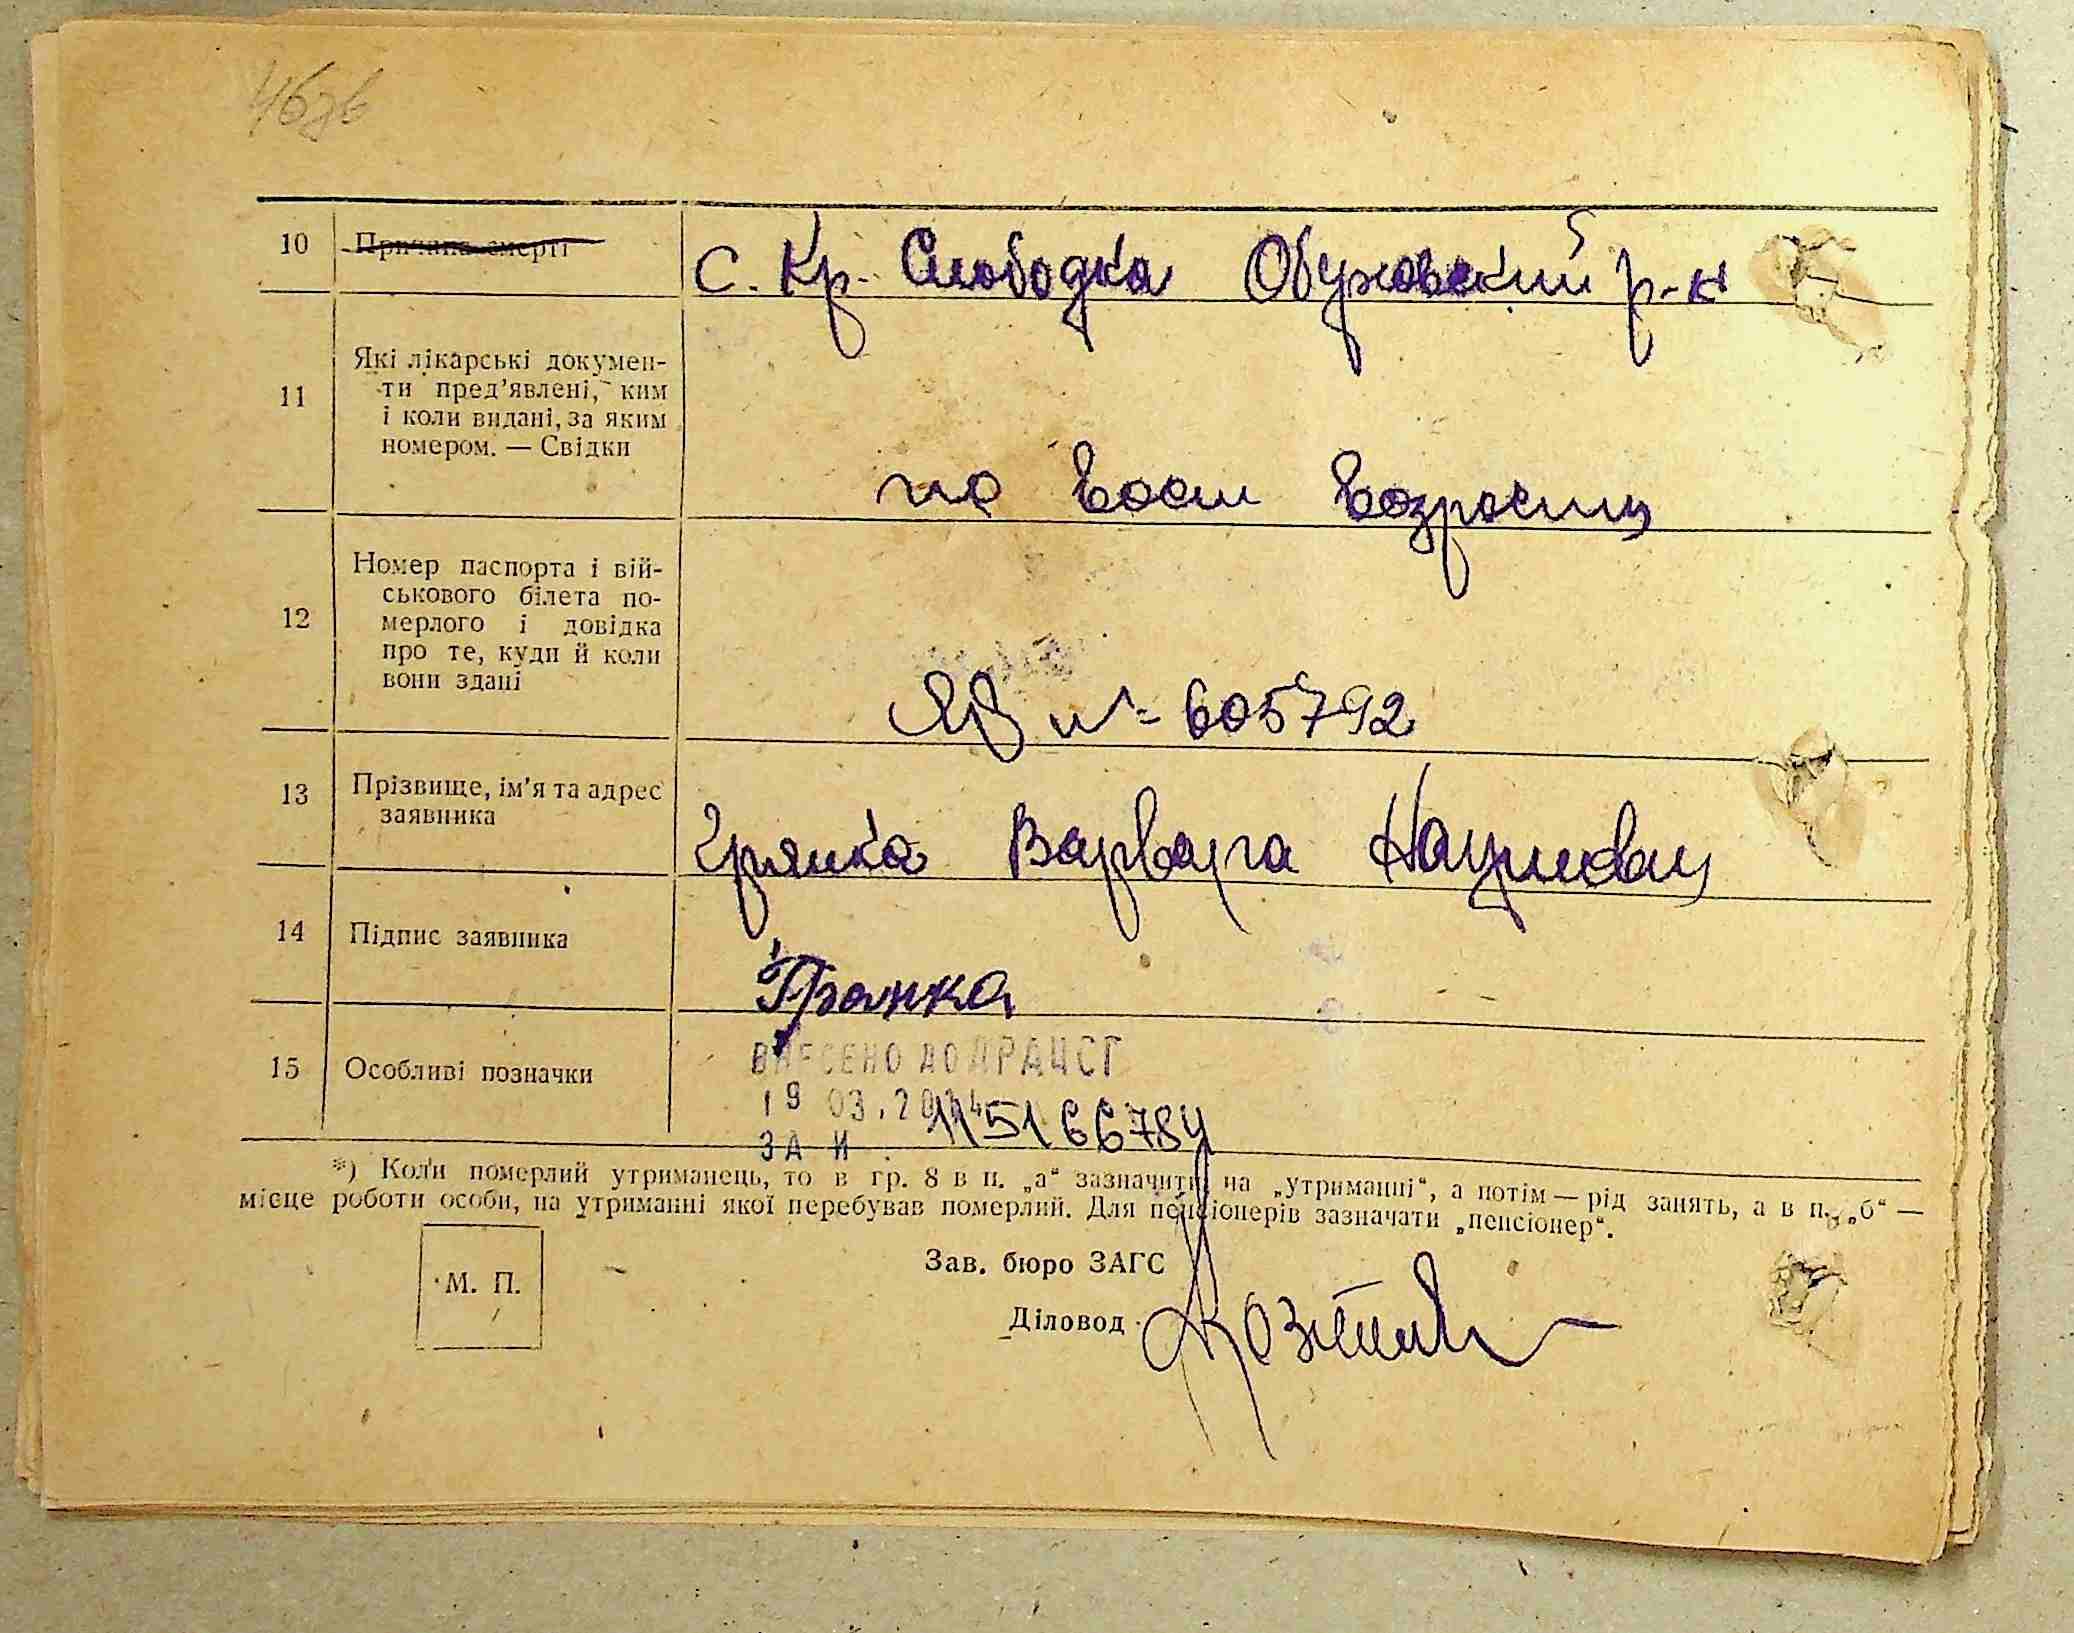 10
Причина смерті
с. Кр. Слободка Обуховский р-н
11
Які лікарські докумен-
ти пред’явлені, ким
і коли видані, за яким
номером. — Свідки
по возрасту
12
Номер паспорта і вій-
ськового білета по-
мерлого і довідка
про те, куди й коли
вони здані
№ 605792
13
Прізвище, ім’я та адрес
заявника
Грянка Варвара Наумовна
14
Підпис заявника
Грянка
15
Особливі позначки
ВНЕСЕНО ДО ДРАЦСГ
19 03. 2014
ЗА №
*) Коли померлий утриманець, то в гр. 8 в п. „а“ зазначити на „утриманні“, а потім — рід занять, а в п. „б“ —
місце роботи особи, на утриманні якої перебував померлий. Для пенсіонерів зазначати „пенсіонер“.
М. П.
Зав. бюро ЗАГС
Діловод